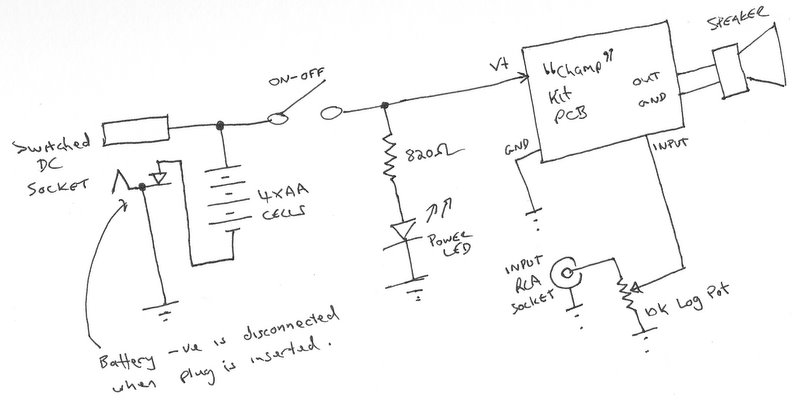 SPEAKER
ON-OFF
V+
"Champ"
Kit
PCB
OUT
GND
GND
INPUT
Switched
DC
SOCKET
820Ω
4xAA
CELLS
POWER
LED
INPUT
RCA
SOCKET
10k Log Pot
Battery -ve is disconnected
when plug is inserted.